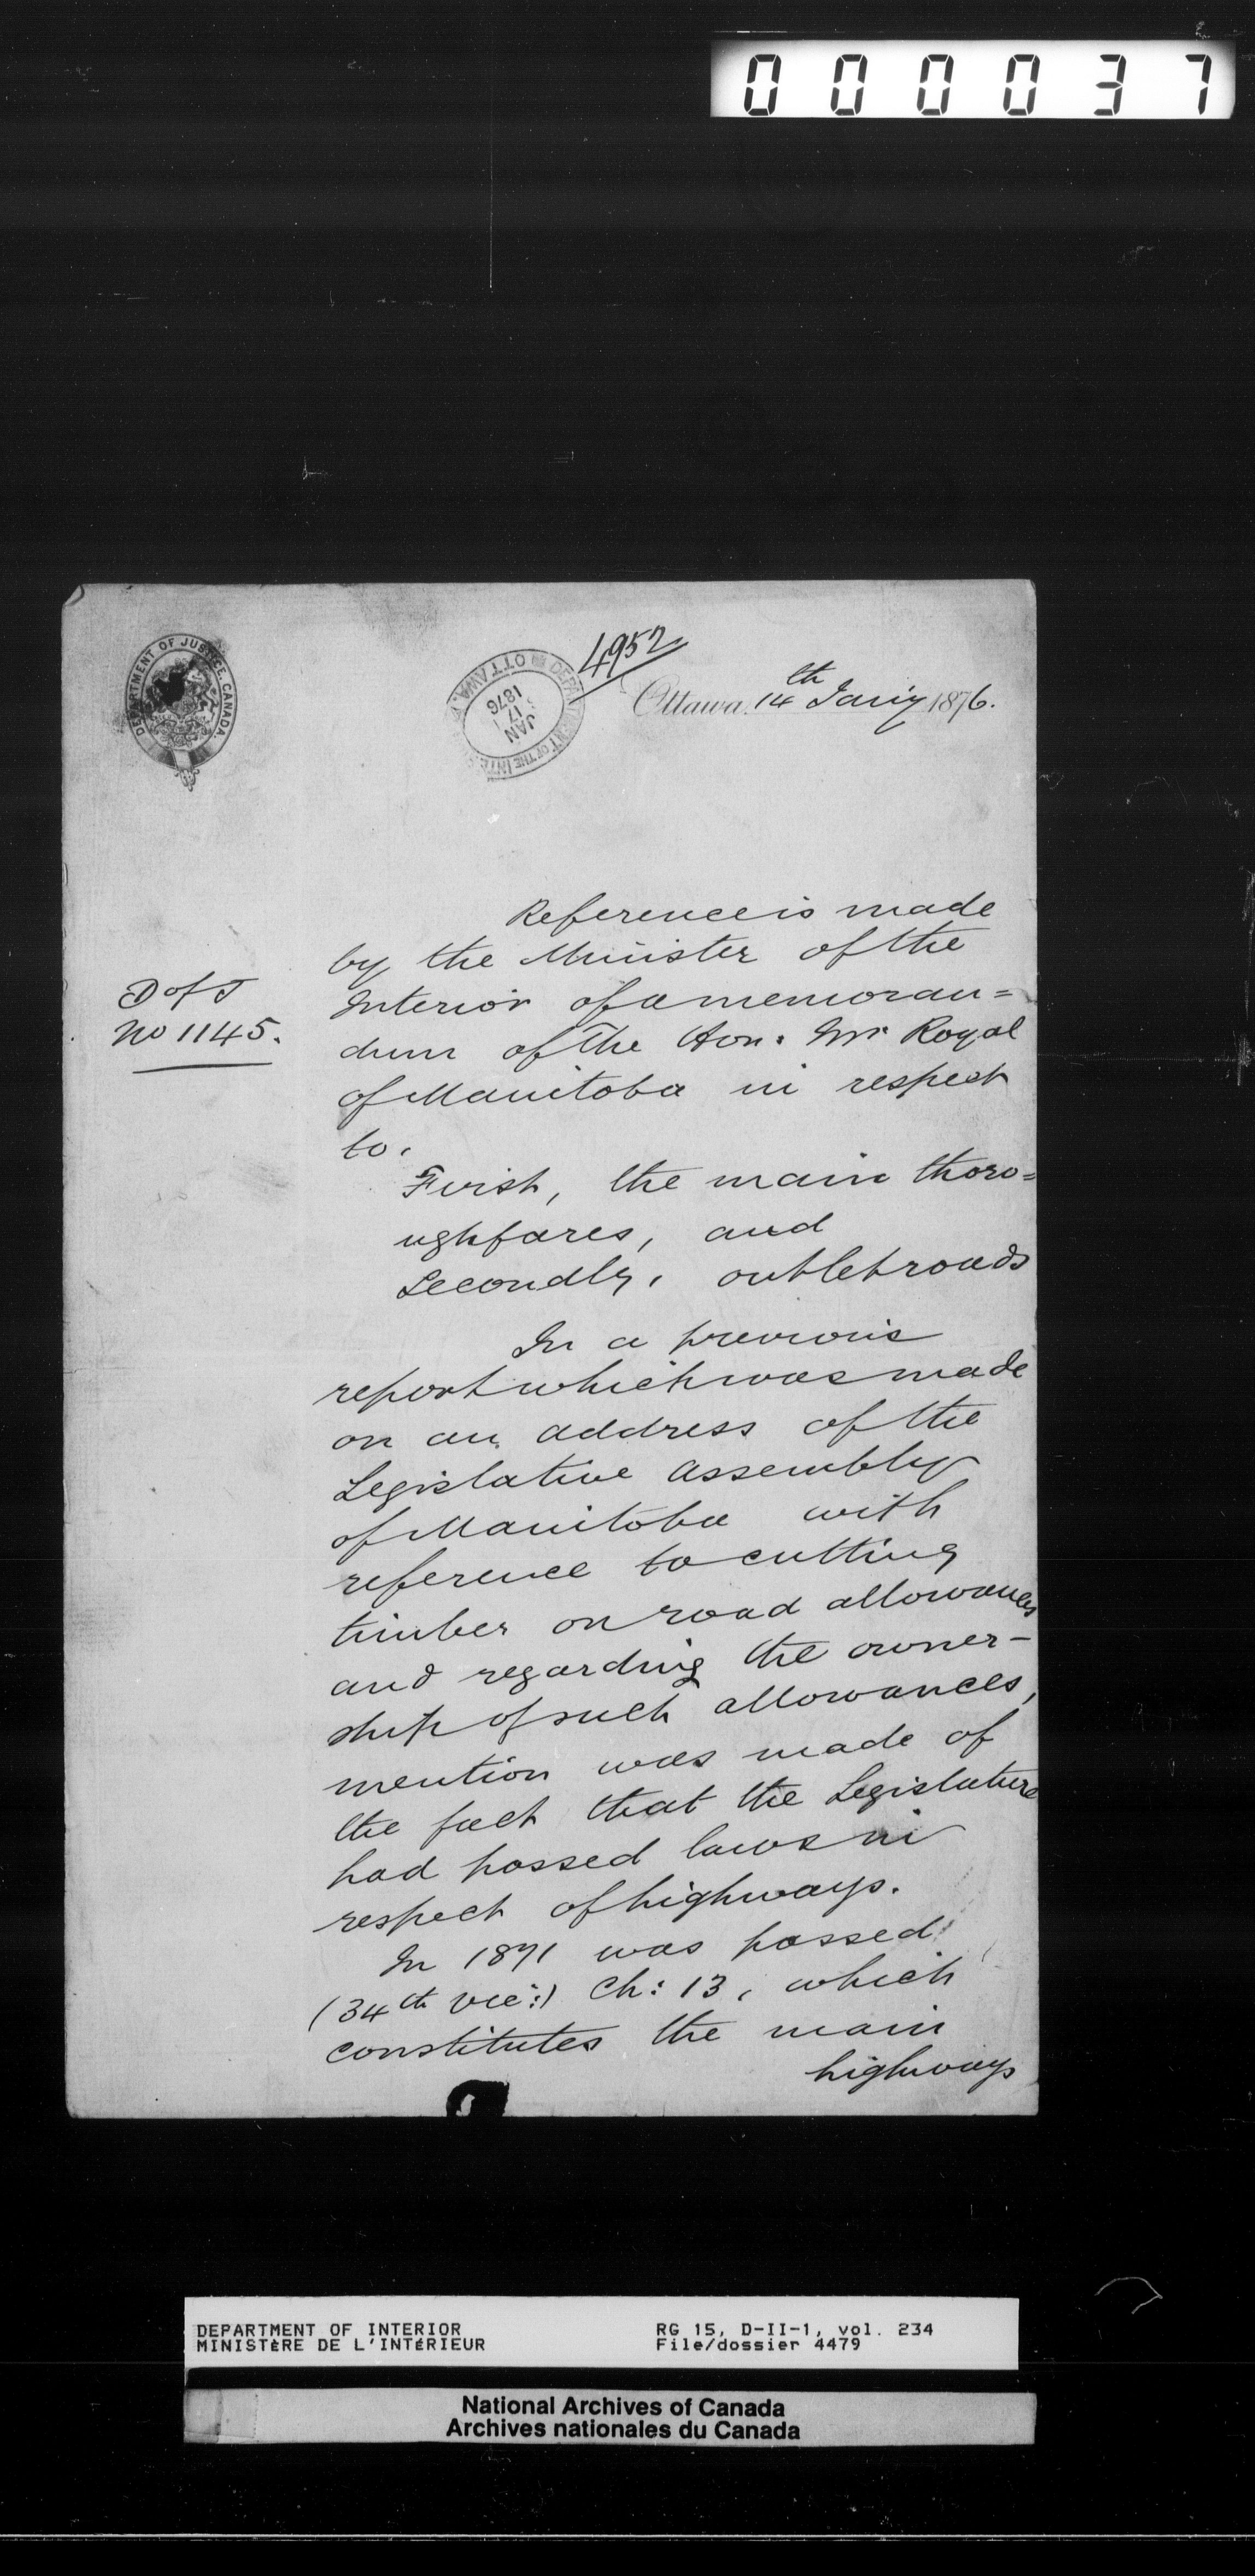 000037
DEPARTMENT OF JUSTICE, CANADA.
4952
DEPARTMENT OF THE INTERIOR OTTAWA.
JAN
17
1876
Ottawa, 14th Jan'y 1876.
Reference is made
by the Minister of the
D of J
No 1145.
Interior of a memoran=
dum of the Hon. Mr Royal
of Manitoba in respect
to.
First, the main thoro=
ughfares, and
Secondly, outlet roads
In a previous
report which was made
on an address of the
Legislative Assembly
of Manitoba with
reference to cutting
timber on road allowances
and regarding the owner-
ship of such allowances,
mention was made of
the fact that the Legislature
had passed laws in
respect of highways.
In 1871 was passed
(34th Vic:) Ch: 13, which
constitutes the main
highways
DEPARTMENT OF INTERIOR
MINISTÈRE DE L'INTÉRIEUR
RG 15, D-II-1, vol. 234
File/dossier 4479
National Archives of Canada
Archives nationales du Canada